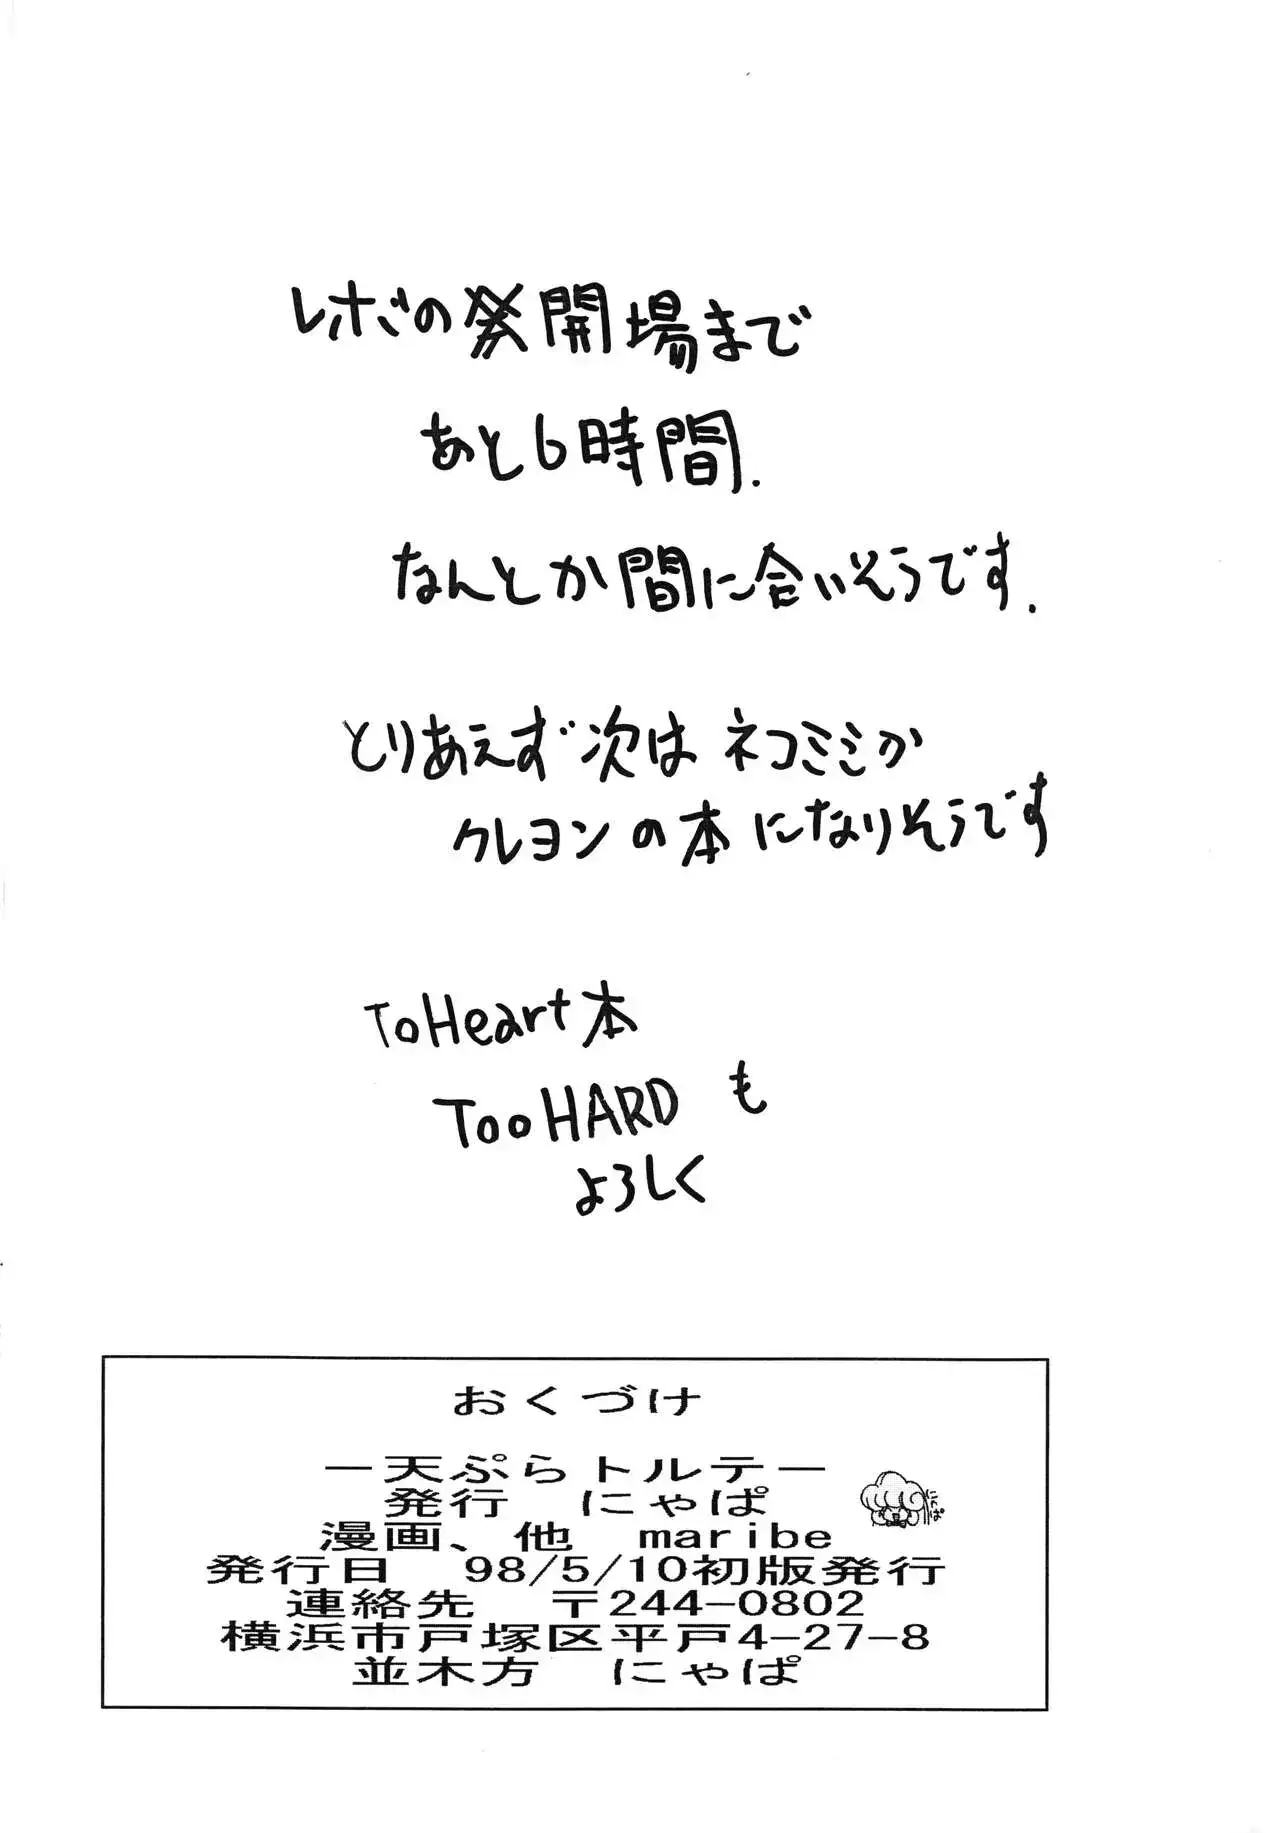 レボの開場まで
あと6時間.
なんとか間に合いそうです.
とりあえず次はネコミミか
クレヨンの本になりそうです
ToHeart本
TooHARDも
よろしく
おくづけ
ー天ぷらトルテー
発行 にゃぱ
漫画、他 maribe
にゃぱ
発行日 98/5/10初版発行
連絡先 〒244-0802
横浜市戸塚区平戸4-27-8
並木方 にゃぱ